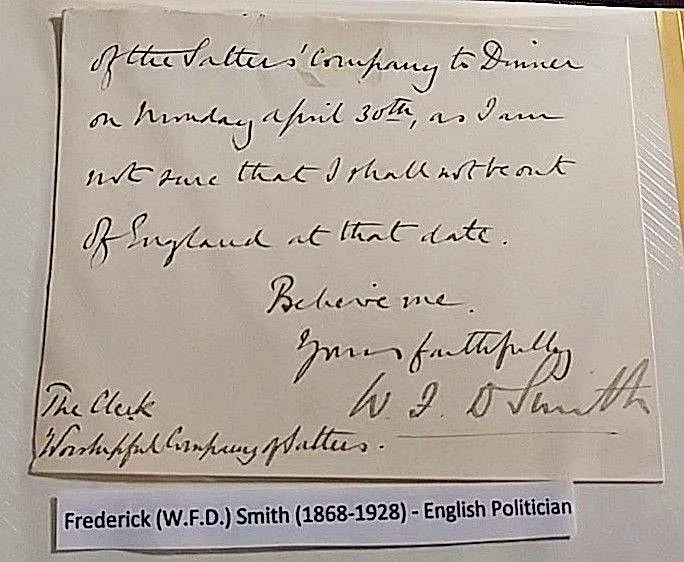 of the Salters' Company to Dinner
on Monday April 30th, as I am
not sure that I shall not be out
of England at that date.
Believe me.
Yours faithfully
W. F. D Smith
The Clerk
Worshipful Company of Salters.
Frederick (W.F.D.) Smith (1868-1928) - English Politician